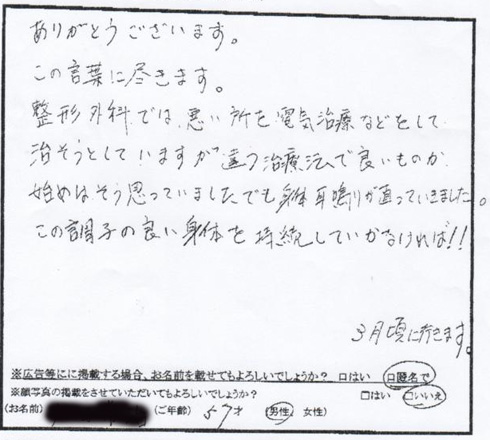 ありがとうございます。
この言葉に尽きます。
整形外科では、悪い所を電気治療などをして
治そうとしていますが違う治療法で良いものか
始めはそう思っていましたでも身体耳鳴りが直っていきました。
この調子の良い身体を持続していかなければ!!
3月頃に行きます。
※広告等にに掲載する場合、お名前を載せてもよろしいでしょうか? □はい □匿名で
※顔写真の掲載をさせていただいてもよろしいでしょうか? □はい □いいえ
(お名前) (ご年齢) 57才 (男性・女性)